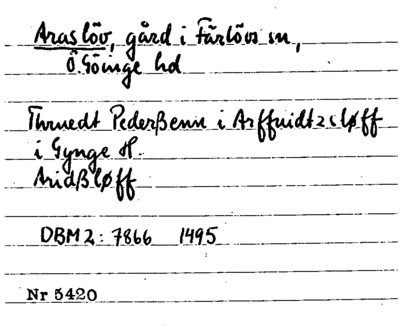 Araslöv, gård i Färlövs sn,
Ö. Göinge hd
Thruedt Pederßenn i Arffuidtzløff
i Gynge H.
Aridßløff
DBM2: 7866 1495
Nr 5420